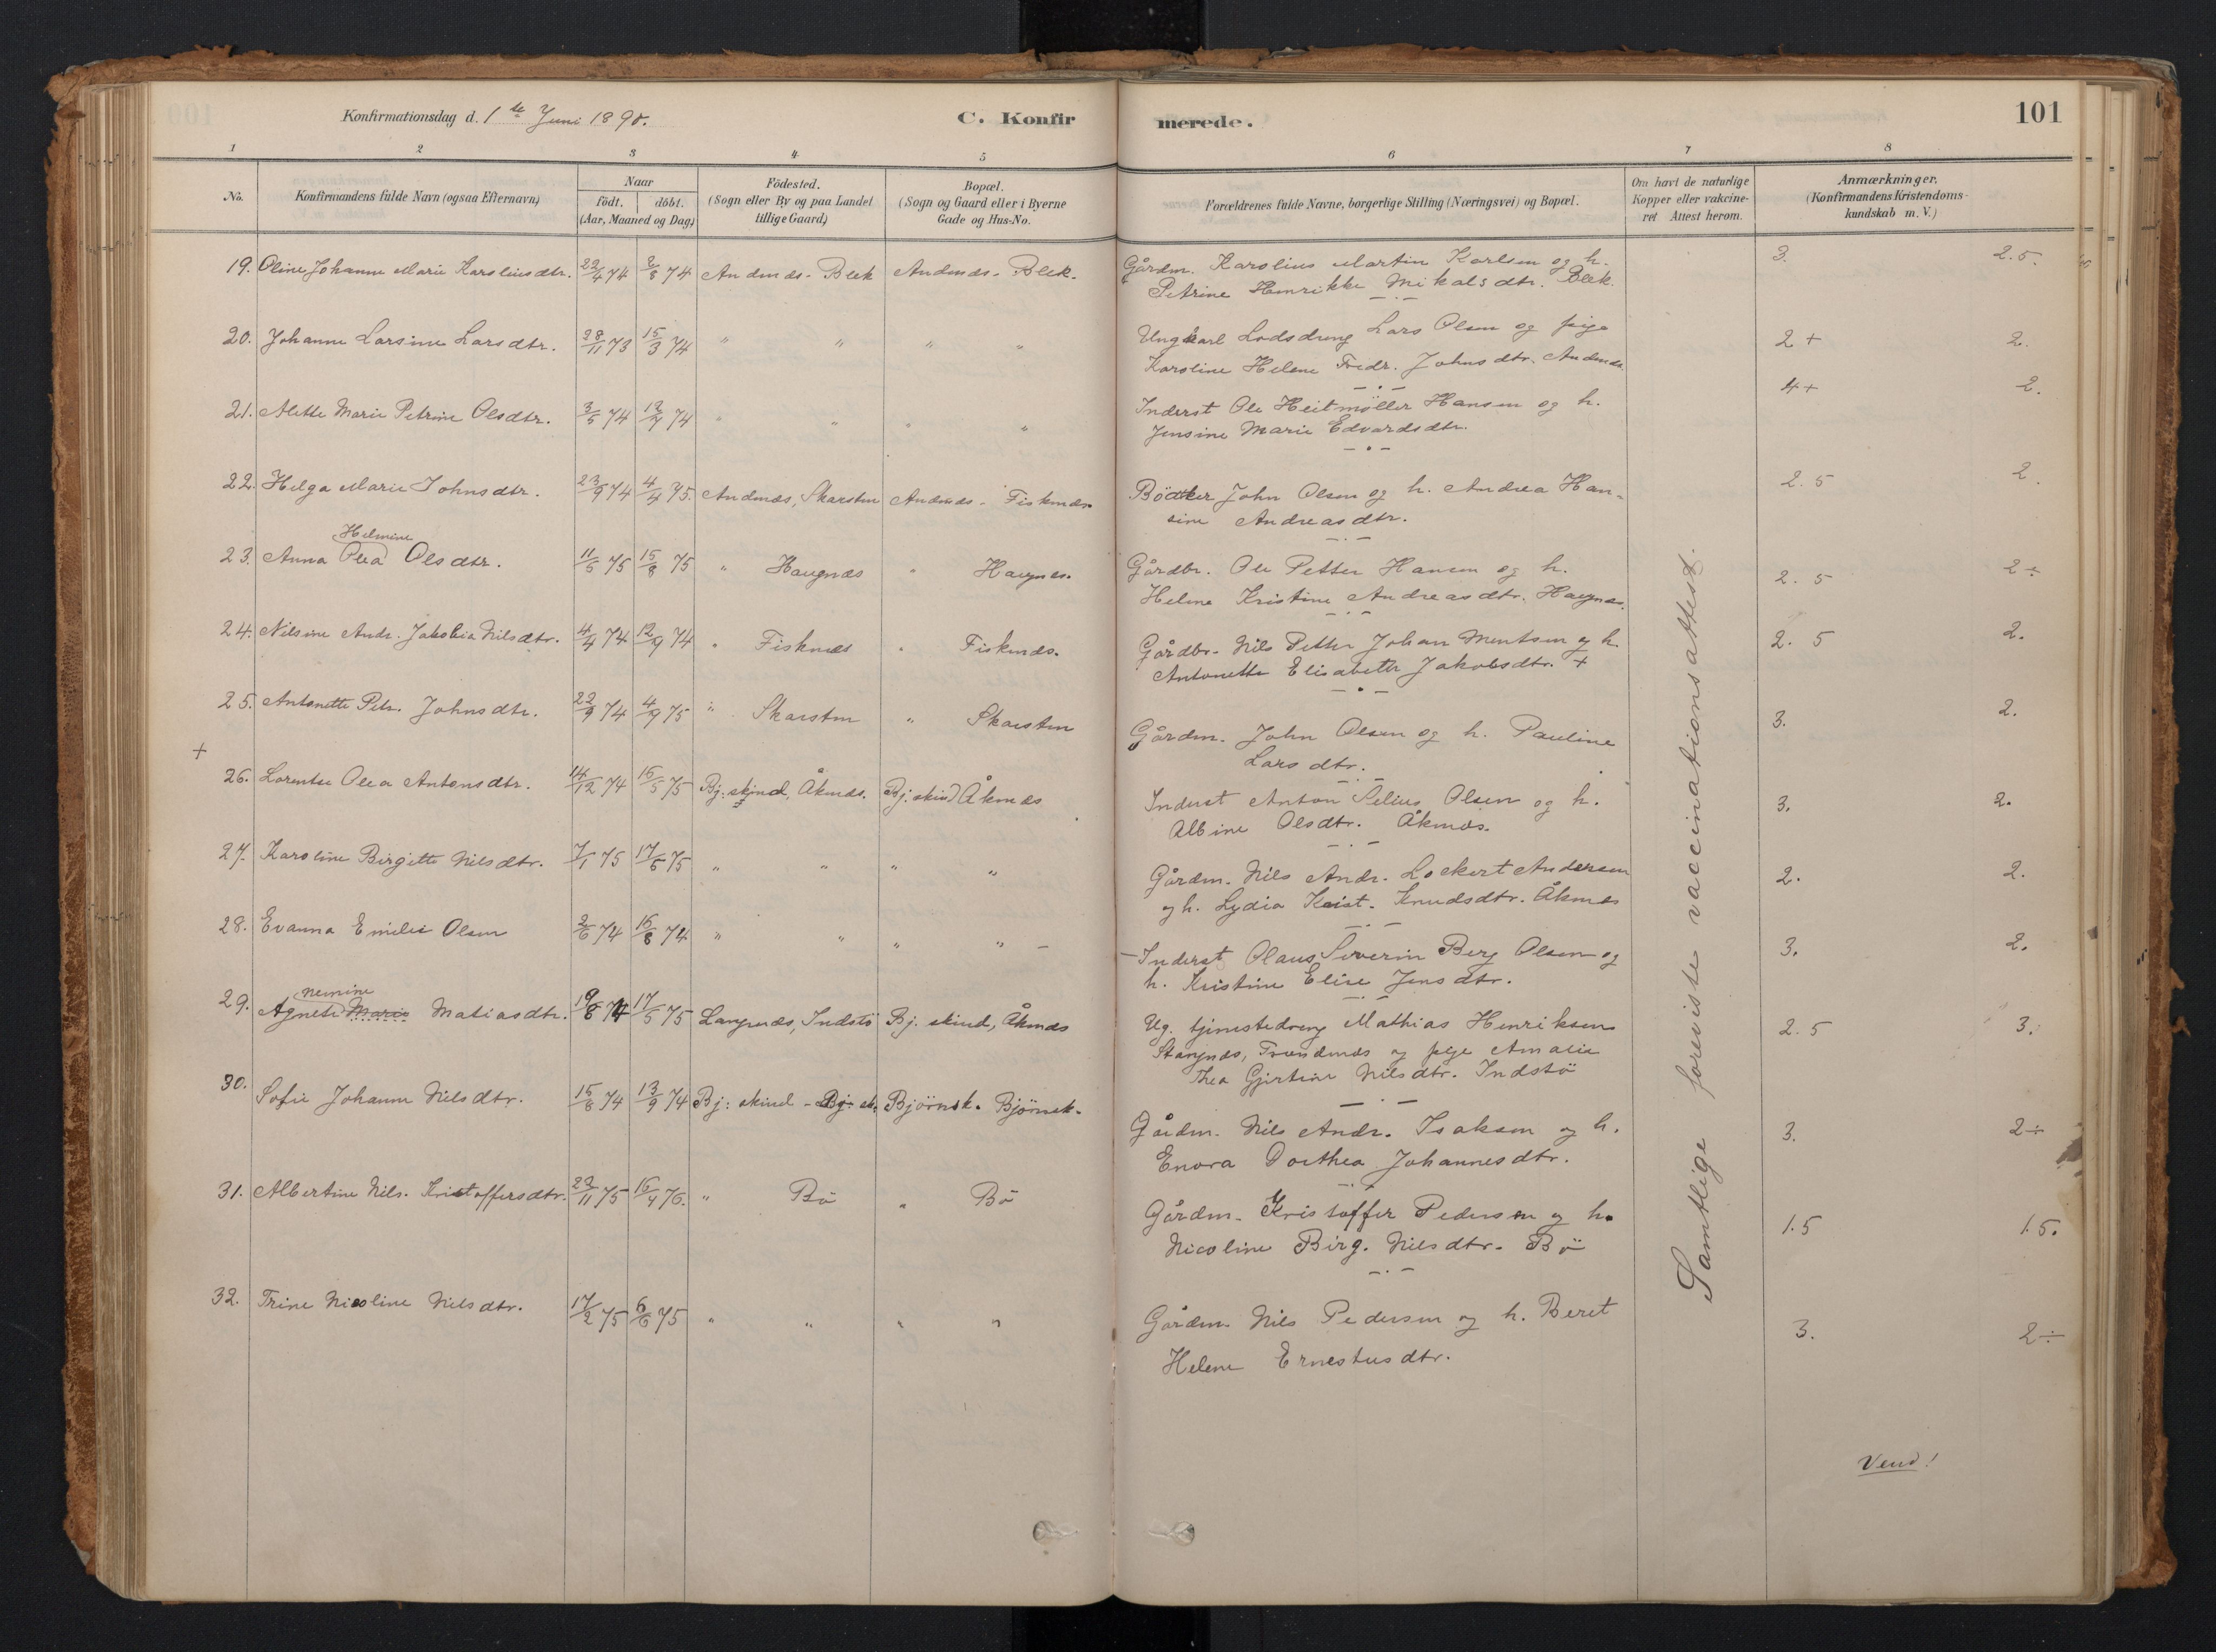 Konfirmationsdag d. 1ste Juni 1890.
C. Konfirmerede.
101
1 2 3 4 5 6 7 8
No.
Konfirmandens fulde Navn (ogsaa Efternavn)
Naar
födt. döbt.
(Aar, Maaned og Dag)
Födested.
(Sogn eller By og paa Landet
tillige Gaard)
Bopæl.
(Sogn og Gaard eller i Byerne
Gade og Hus-No.
Forældrenes fulde Navne, borgerlige Stilling (Næringsvei) og Bopæl.
Om havt de naturlige
Kopper eller vakcine-
ret Attest herom.
Anmærkninger.
(Konfirmandens Kristendoms-
kundskab m. V.)
19. Oline Johanne Marie Karoliusdtr. 22/4 74 2/8 74 Andenæs - Blek Andenæs - Blek.
Gårdm. Karolius Martin Karlsen og h. 3. 2.5.
Petrine Henrikke Mikalsdtr. Blek.
20. Johanne Larsine Larsdtr. 28/11 73 15/3 74 " " " "
Ungkarl Lodsdreng Lars Olsen og pige 2+ 2.
Karoline Helene Fredr. Johnsdtr. Andenæs
21. Alette Marie Petrine Olsdtr. 3/5 74 12/7 74 " " " "
Inderst Ole Heitmøller Hansen og h. 4+ 2.
Jensine Marie Edvardsdtr.
22. Helga Marie Johnsdtr. 23/9 74 4/4 75. Andenæs, Skarsten Andenæs - Fiskenæs
Bödker John Olsen og h. Andrea Han- 2.5 2.
sine Andreasdtr.
Helmine
23. Anna Olea Olsdtr. 11/5 75 15/8 75 " Haugnæs " Haugnæs.
Gårdbr. Ole Petter Hansen og h. 2.5 2÷
Helene Kristine Andreasdtr. Haugnæs.
24. Nilsine Andr. Jakobia Nilsdtr. 4/4 74 12/9 74 " Fiskenæs " Fiskenæs.
Gårdbr. Nils Petter Johan Mentsen og h. 2.5 2.
Antonette Elisabeth Jakobsdtr. +
25. Antonette Petr. Johnsdtr. 22/9 74 4/9 75 " Skarsten " Skarsten
Gårdm. John Olsen og h. Pauline 3. 2.
Larsdtr.
+
26. Lorentse Olea Antonsdtr. 14/12 74 16/5 75 Bj:skind, Åknæs. Bj.skind Åknæs
Inderst Anton Selius Olsen og h. 3. 2.
Albine Olsdtr. Åknæs.
27. Karoline Birgitte Nilsdtr. 7/1 75 17/5 75 " " " "
Gårdm. Nils Andr. Lockert Andersen 2. 2.
og h. Lydia Krist. Knudsdtr. Åknæs
28. Evanna Emilie Olsen 2/6 74 16/8 74 " " " " -
- Inderst Olaus Severin Berg Olsen og 3. 2.
h. Kristine Elise Jensdtr.
nemine
29. Agnete Marie Matiasdtr. 19/8 74 17/5 75 Langenæs, Indstö Bj. skind, Åknæs
Ug. tjenestedreng Mathias Henriksen 2.5 3.
Stangnæs, Trondenæs og pige Amalie
Thea Gjertine Nilsdtr. Indstö
30. Sofie Johanne Nilsdtr. 15/8 74 13/9 74 Bj: skind - Bj: sk. Björnsk. Björnsk.
Gårdm. Nils Andr. Isaksen og h. 3. 2÷
Enora Dorthea Johannesdtr.
31. Albertine Nils. Kristoffersdtr. 22/11 75 16/4 76. " Bö " Bö
Gårdm. Kristoffer Pedersen og h. 1.5 1.5.
Nicoline Birg. Nilsdtr. Bö
32. Trine Nicoline Nilsdtr. 17/2 75 6/6 75 " " " "
Gårdm. Nils Pedersen og h. Beret 3. 2÷
Helene Ernestusdtr.
Samtlige foreviste vaccinationsattest.
Vend!